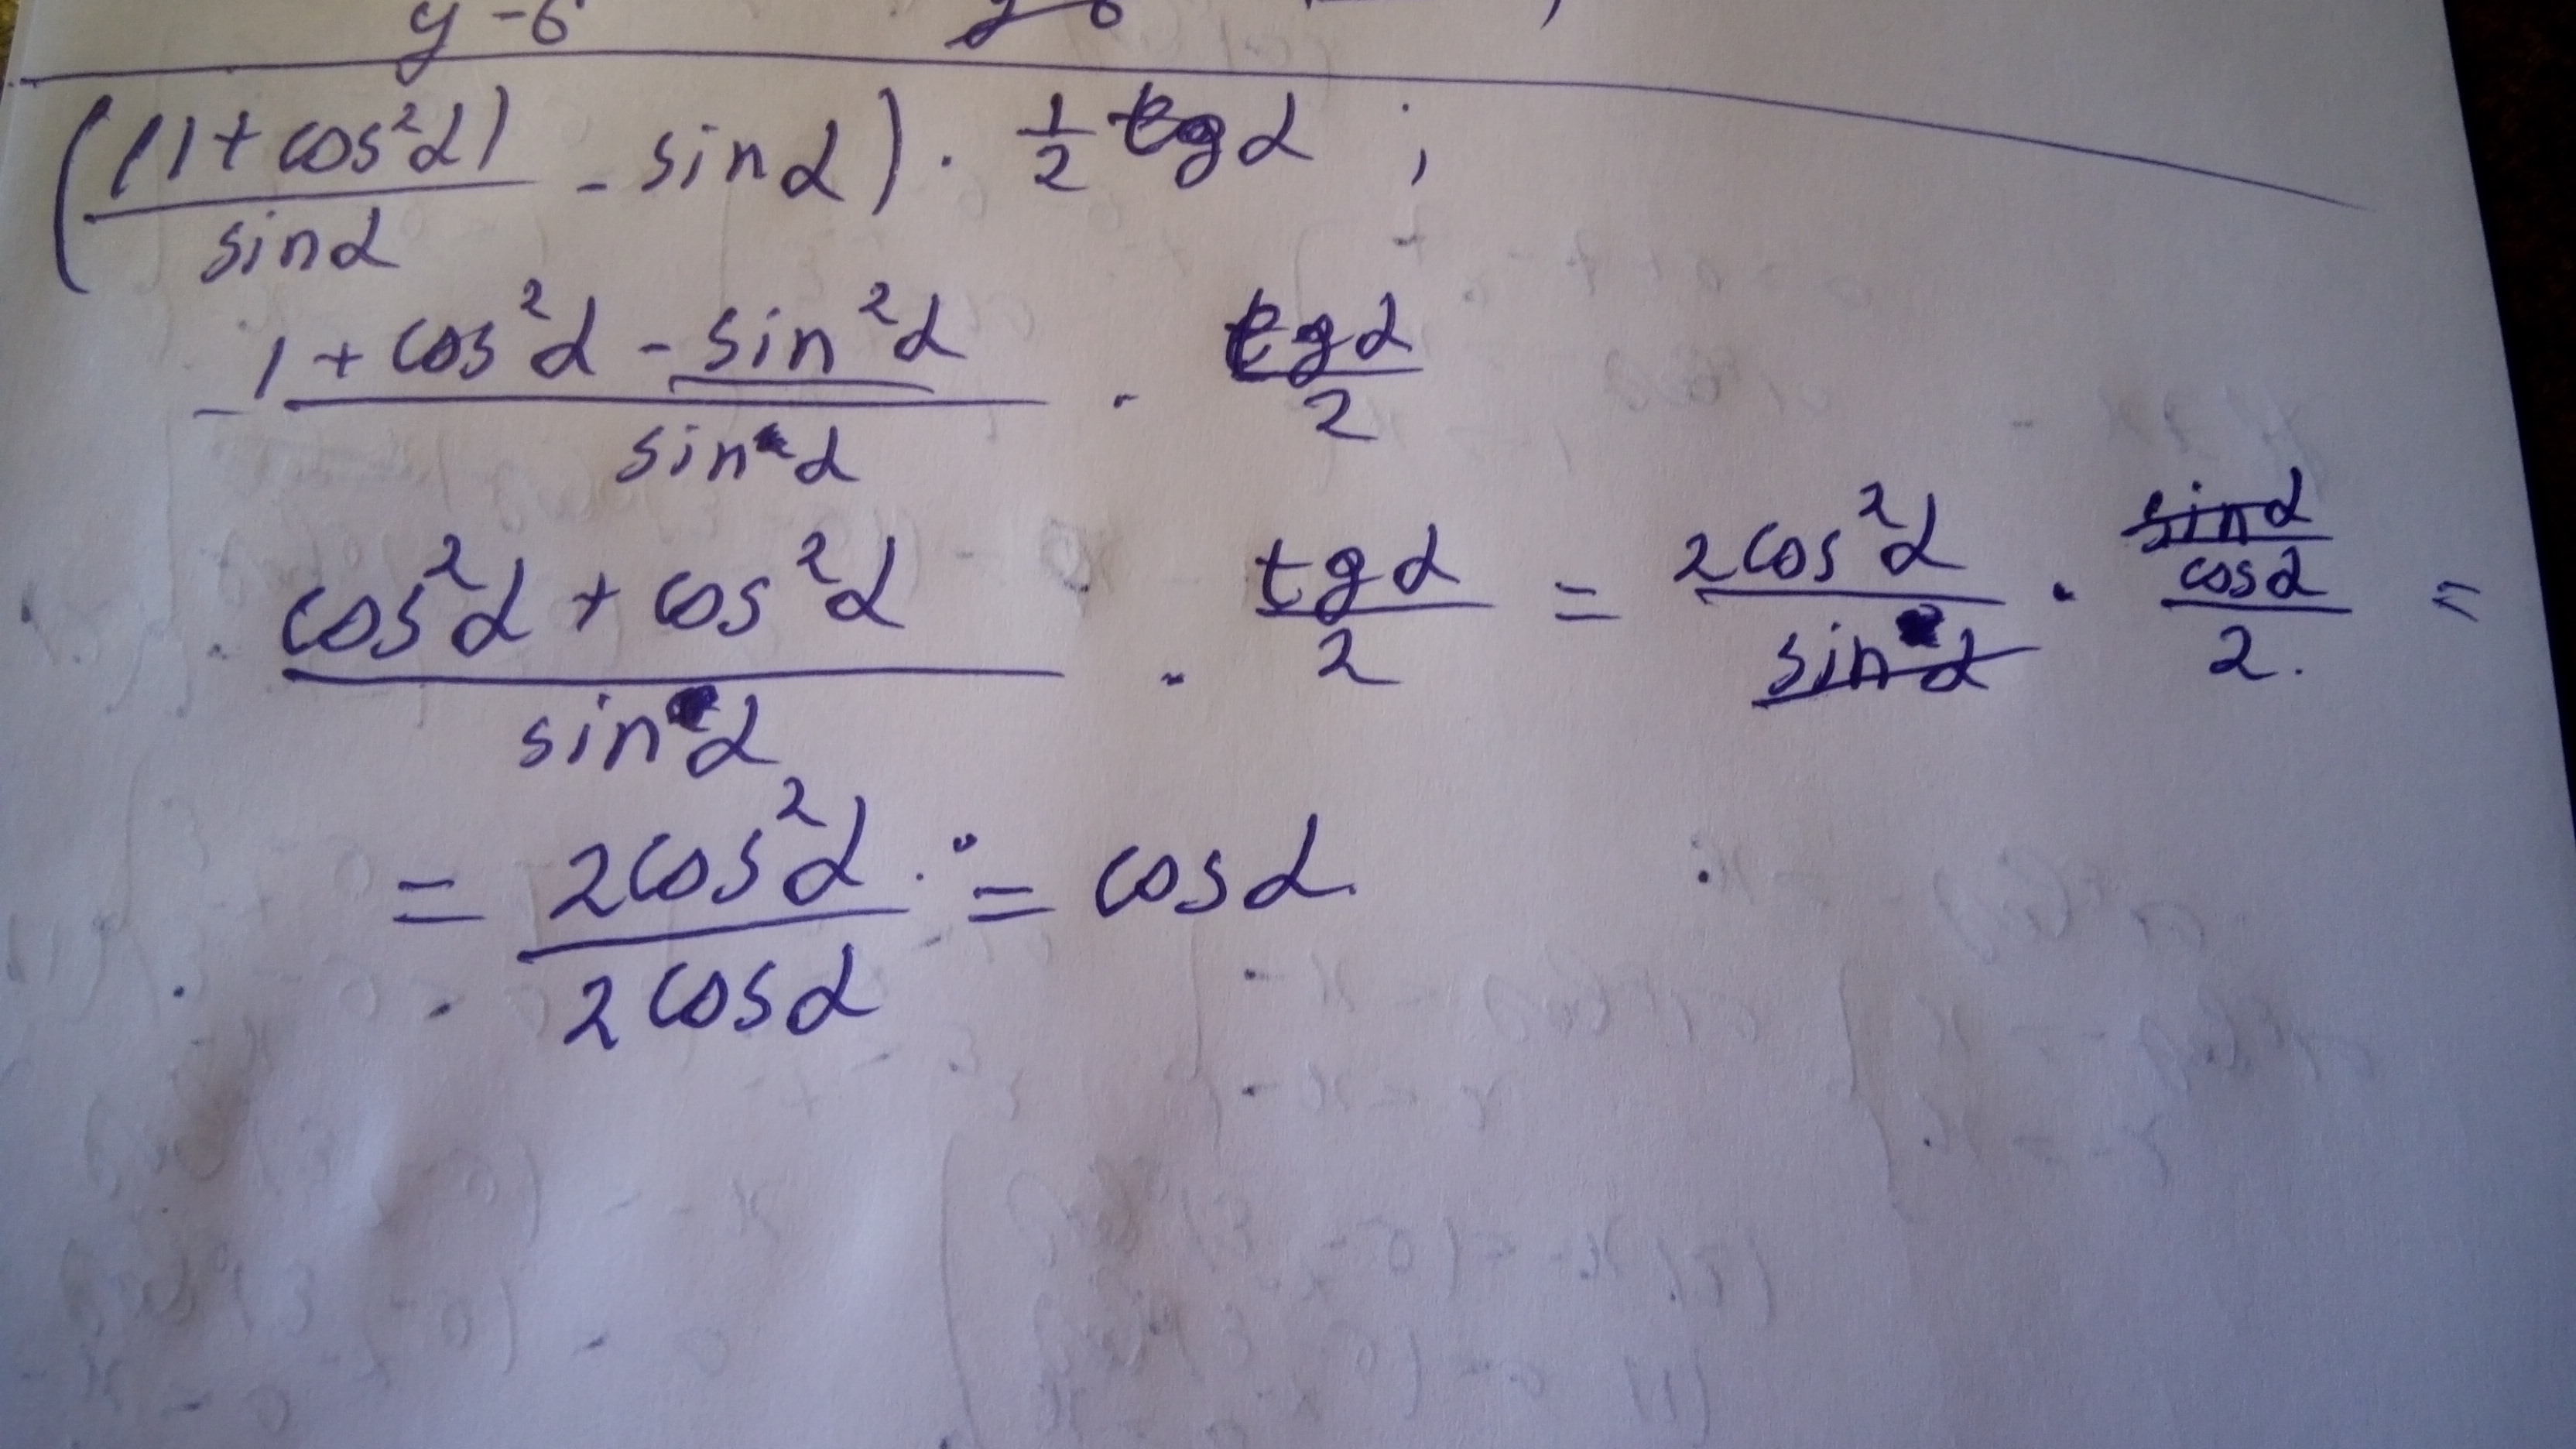 y-6 y-6
((1+cos²α)/sinα - sinα) · 1/2 tgα ;
(1+cos²α-sin²α)/sinα · tgα/2
(cos²α+cos²α)/sinα · tgα/2 = 2cos²α/sinα · (sinα/cosα)/2 =
= 2cos²α/2cosα = cosα.